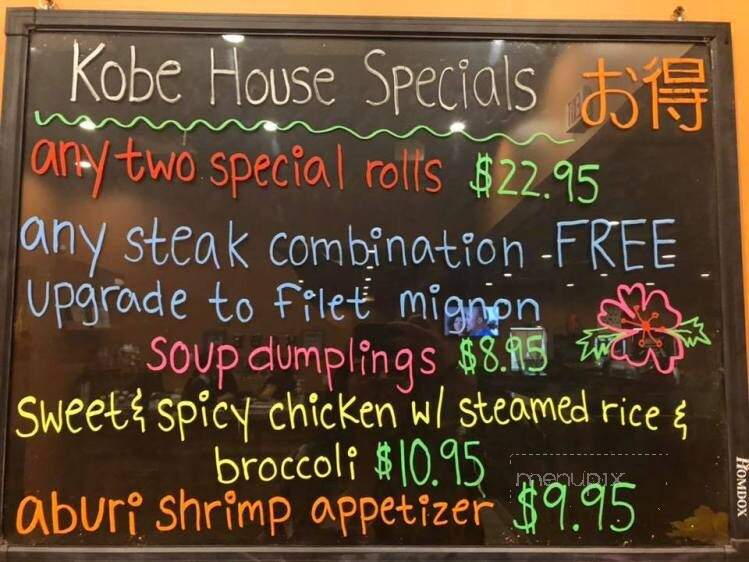 Kobe House Specials お得
any two special rolls $22.95
any steak combination - FREE
upgrade to filet mignon
soup dumplings $8.95
sweet & spicy chicken w/ steamed rice &
broccoli $10.95
menupix
aburi shrimp appetizer $9.95
HOMDOX